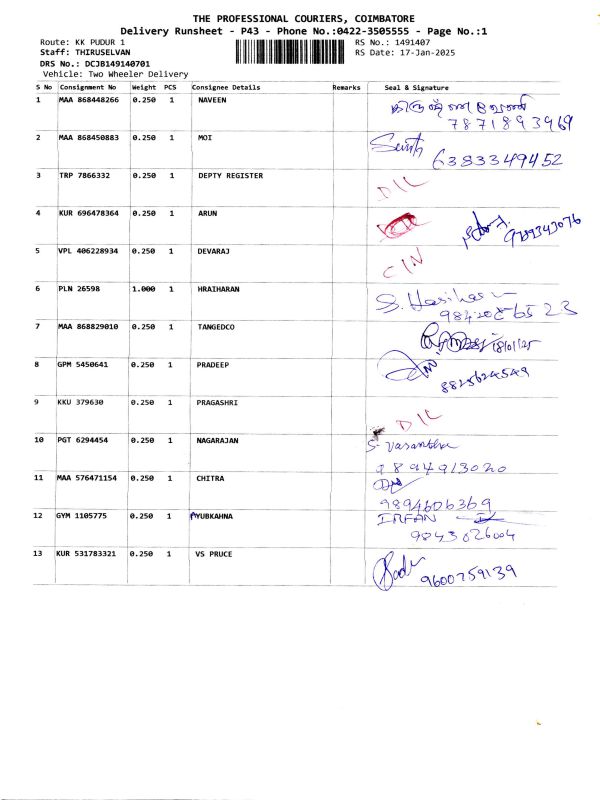 THE PROFESSIONAL COURIERS, COIMBATORE
Delivery Runsheet - P43 - Phone No.:0422-3505555 - Page No.:1
Route: KK PUDUR 1 RS No.: 1491407
Staff: THIRUSELVAN RS Date: 17-Jan-2025
DRS No.: DCJB149140701
Vehicle: Two Wheeler Delivery
S No Consignment No Weight PCS Consignee Details Remarks Seal & Signature
1 MAA 868448266 0.250 1 NAVEEN
7871893969
2 MAA 868450883 0.250 1 MOI
6383349452
3 TRP 7866332 0.250 1 DEPTY REGISTER D/L
4 KUR 696478364 0.250 1 ARUN 9789343076
5 VPL 406228934 0.250 1 DEVARAJ C/N
6 PLN 26598 1.000 1 HRAIHARAN S. Hariharan
7 MAA 868829010 0.250 1 TANGEDCO 18/01/25
8 GPM 5450641 0.250 1 PRADEEP
8825624549
9 KKU 379630 0.250 1 PRAGASHRI D/L
10 PGT 6294454 0.250 1 NAGARAJAN S. Vasantha
9894913020
11 MAA 576471154 0.250 1 CHITRA
9894606369
12 GYM 1105775 0.250 1 AYUBKAHNA IRFAN
9843026004
13 KUR 531783321 0.250 1 VS PRUCE
9600759139